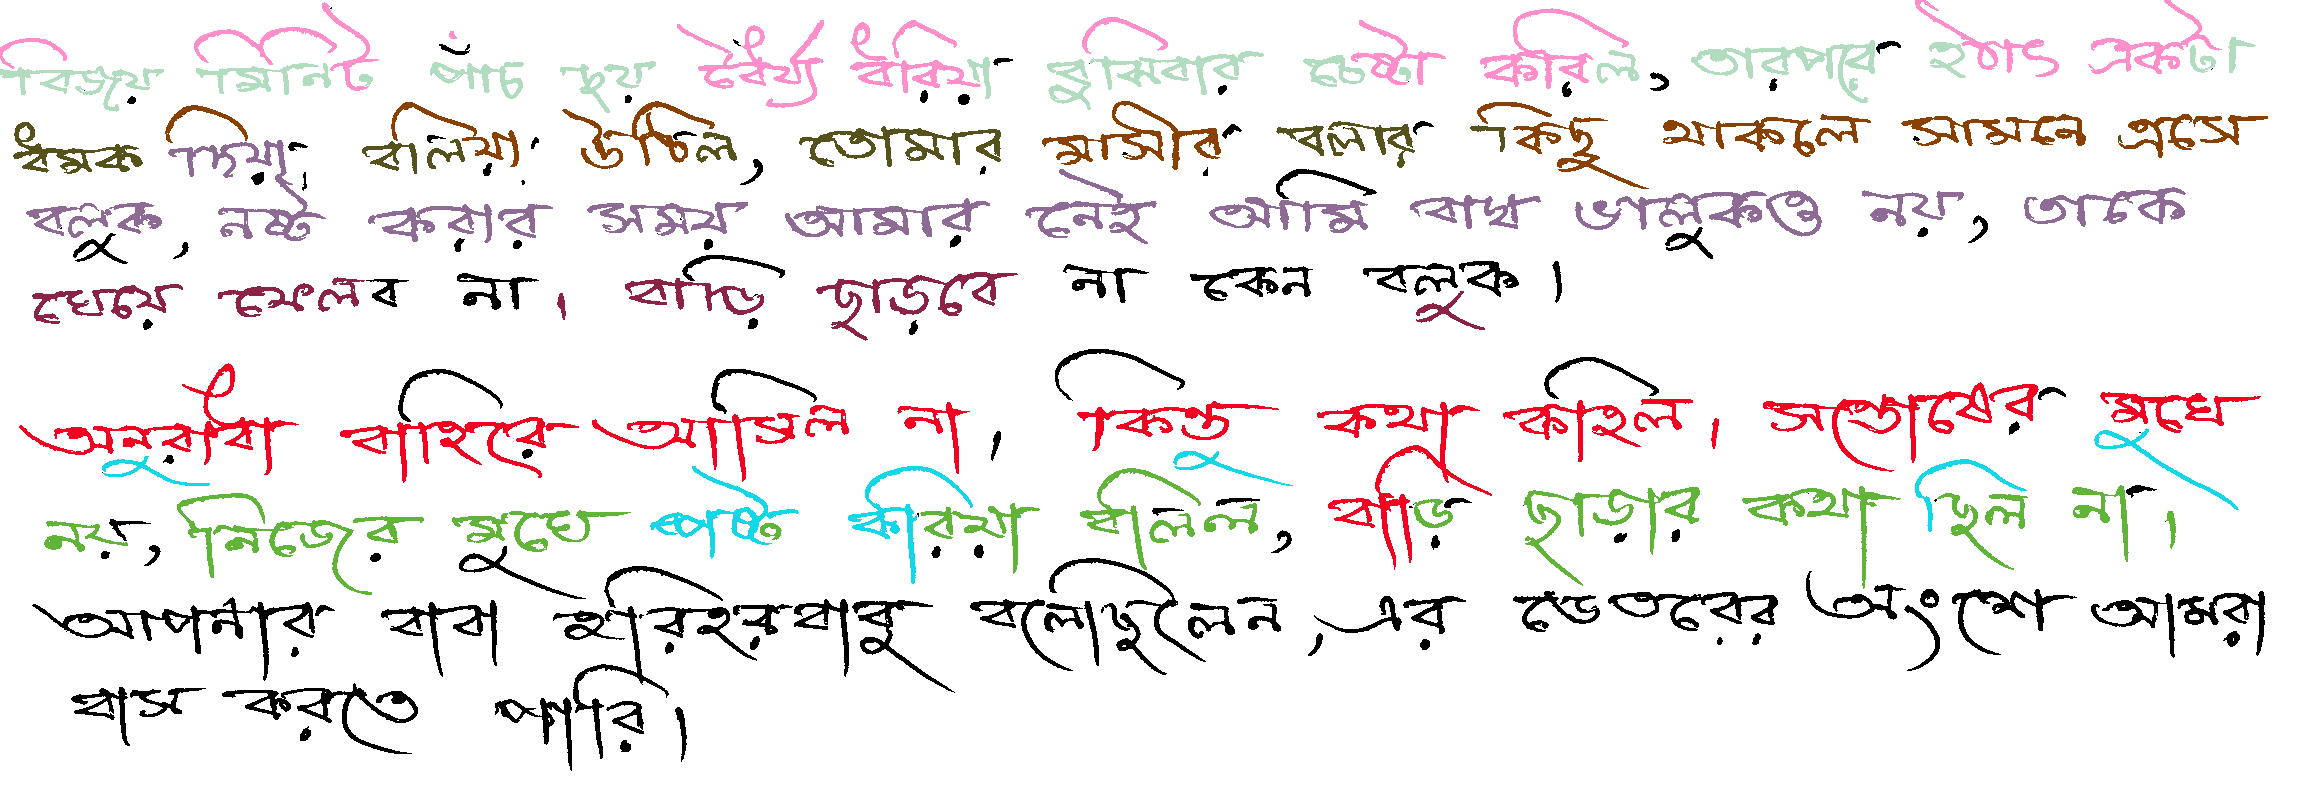 বিজয় মিনিট পাঁচ ছয় ধৈর্য্য ধরিয়া বুঝিবার চেষ্টা করিল, তারপরে হঠাৎ একটা
ধমক দিয়া বলিয়া উঠিল, তোমার মাসীর বলার কিছু থাকলে সামনে এসে
বলুক, নষ্ট করার সময় আমার নেই আমি বাঘ ভালুকও নয়, তাকে
খেয়ে ফেলব না। বাড়ি ছাড়বে না কেন বলুক।
অনুরাধা বাহিরে আসিল না, কিন্তু কথা কহিল। সন্তোষের মুখে
নয়, নিজের মুখে স্পষ্ট করিয়া বলিল, বাড়ি ছাড়ার কথা ছিল না।
আপনার বাবা হরিহরবাবু বলেছিলেন, এর ভেতরের অংশে আমরা
বাস করতে পারি।